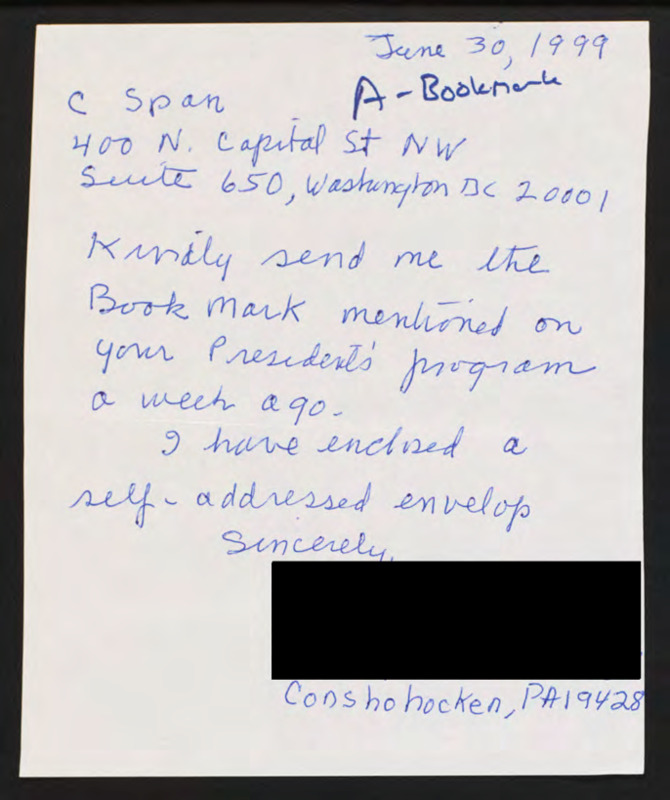 June 30, 1999
A-Bookmark
C Span
400 N. Capital St NW
Suite 650, Washington DC 20001
Kindly send me the
Book Mark mentioned on
your Presidents' program
a week ago.
I have enclosed a
self-addressed envelop
Sincerely,
Conshohocken, PA 19428